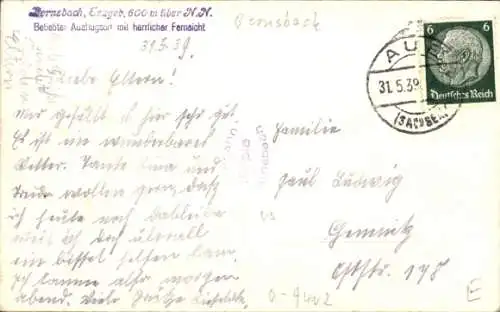 Bernsbach, Erzgeb. 600 m über N.N.
Beliebter Ausflugsort mit herrlicher Fernsicht
Bernsbach
31.5.39.
Liebe Eltern!
Mir gefällt es hier sehr gut.
Es ist ein wunderbares
Wetter. Tante und
wollen gern, daß
ich heute noch dableibe
weil ich doch überall
ein bissel helfen kann.
Ich komme also morgen
abend. Viele Grüße
Familie
Paul Ludwig
Chemnitz
Oststr. 178
AUE
31.5.39
(SACHSEN)
6 6
Deutsches Reich
E